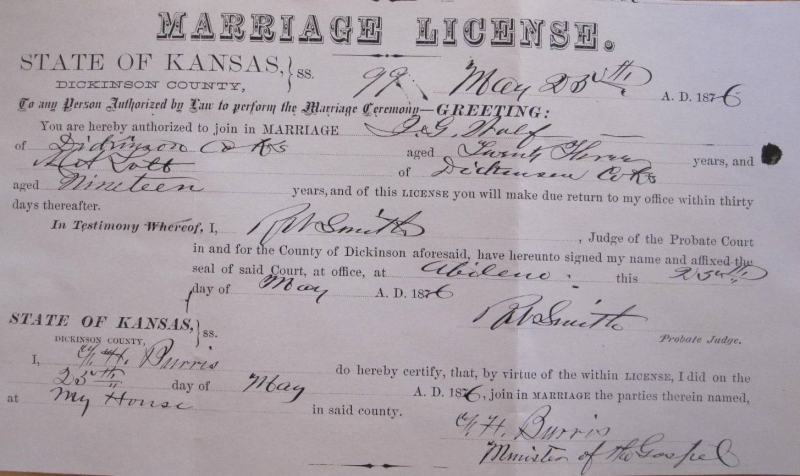 MARRIAGE LICENSE.
STATE OF KANSAS, } ss. 99 May 25th A. D. 1876
DICKINSON COUNTY,
To any Person Authorized by Law to perform the Marriage Ceremony—GREETING:
You are hereby authorized to join in MARRIAGE J. G. Wolf
of Dickinson Co Ks aged Twenty Three years, and
Lott of Dickinson Co Ks
aged Nineteen years, and of this LICENSE you will make due return to my office within thirty
days thereafter.
In Testimony Whereof, I, Smith, Judge of the Probate Court
in and for the County of Dickinson aforesaid, have hereunto signed my name and affixed the
seal of said Court, at office, at Abilene this 25th
day of May A. D. 1876
Smith
Probate Judge.
STATE OF KANSAS, } ss.
DICKINSON COUNTY,
I, H. Burris do hereby certify, that, by virtue of the within LICENSE, I did on the
25th day of May A. D. 1876, join in MARRIAGE the parties therein named,
at My House in said county.
H. Burris
Minister of the Gospel